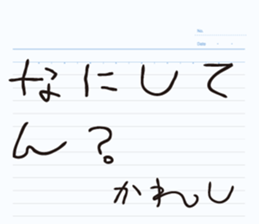 No.
Date
なにして
ん?
かわし